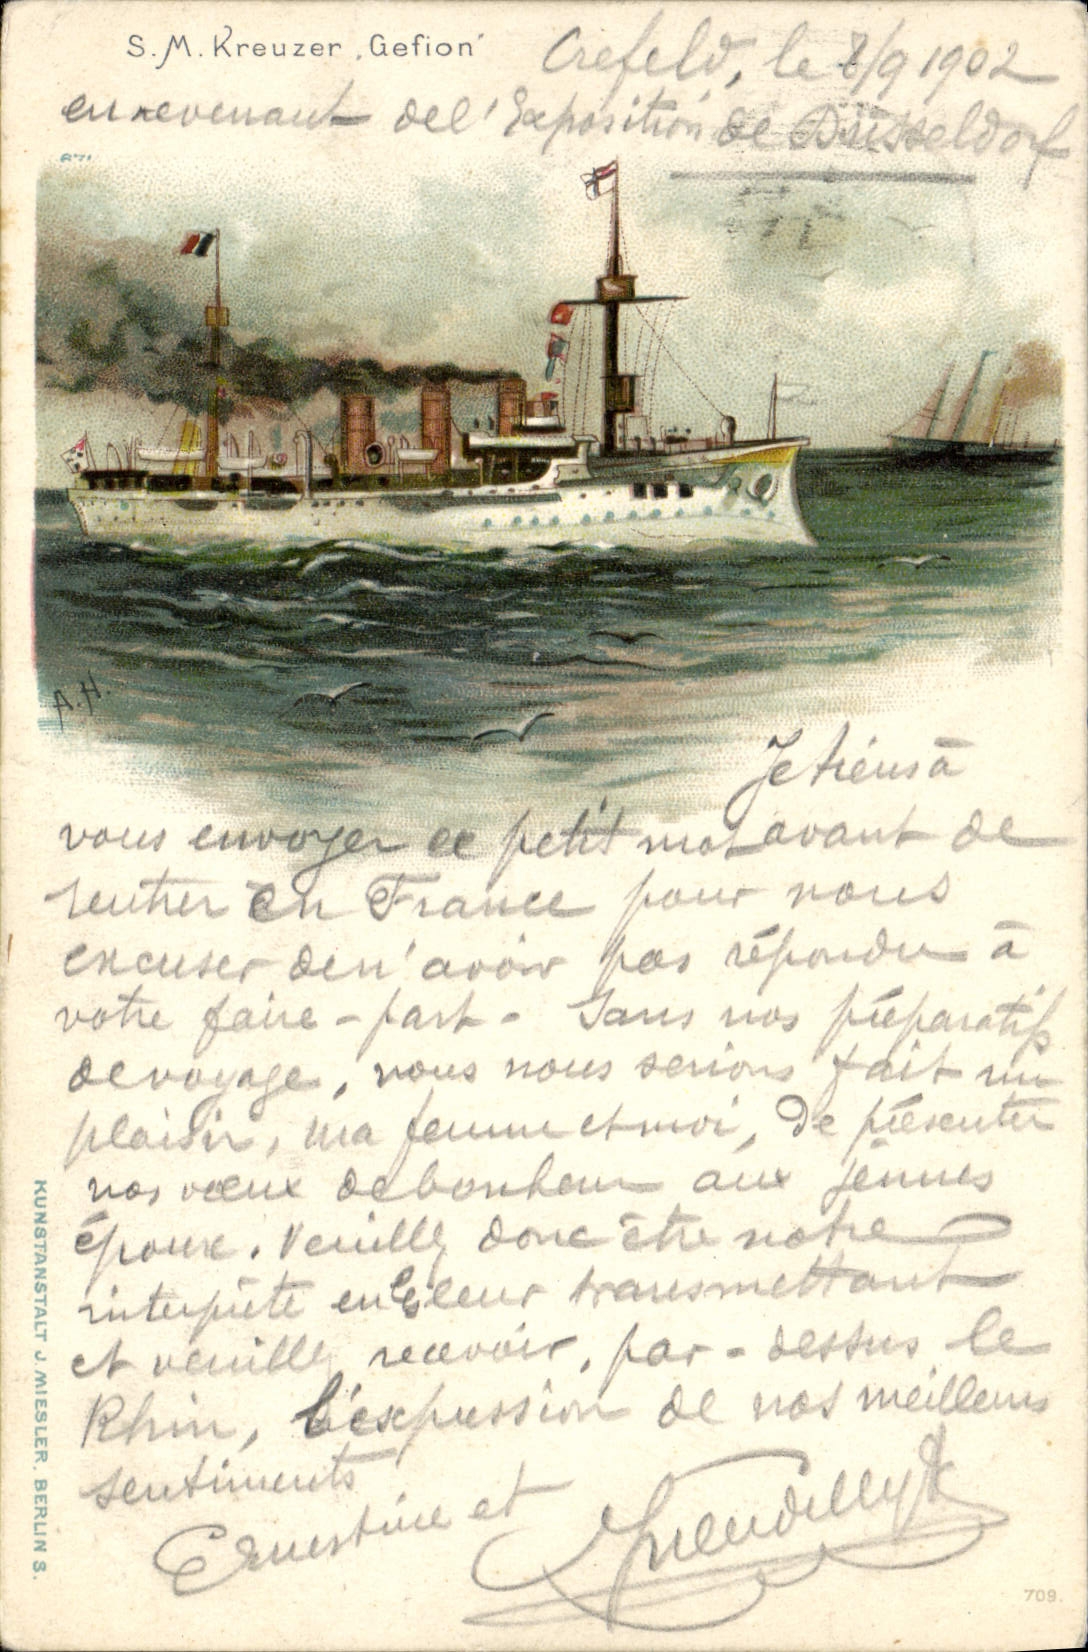 S. M. Kreuzer „Gefion"
Crefeld, le 8/9 1902
en revenant de l'Exposition de Düsseldorf
A. H.
Je tiens à
vous envoyer ce petit mot avant de
rentrer en France pour nous
excuser de n'avoir pas répondu à
votre faire-part - Sans nos préparatifs
de voyage, nous nous serions fait un
plaisir, ma femme et moi, de présenter
nos vœux de bonheur aux jeunes
époux. Veuillez donc être notre
interprète en les leur transmettant
et veuillez recevoir, par-dessus le
Rhin, l'expression de nos meilleurs
sentiments
Ernestine et
KUNSTANSTALT J. MIESLER, BERLIN S.
709.